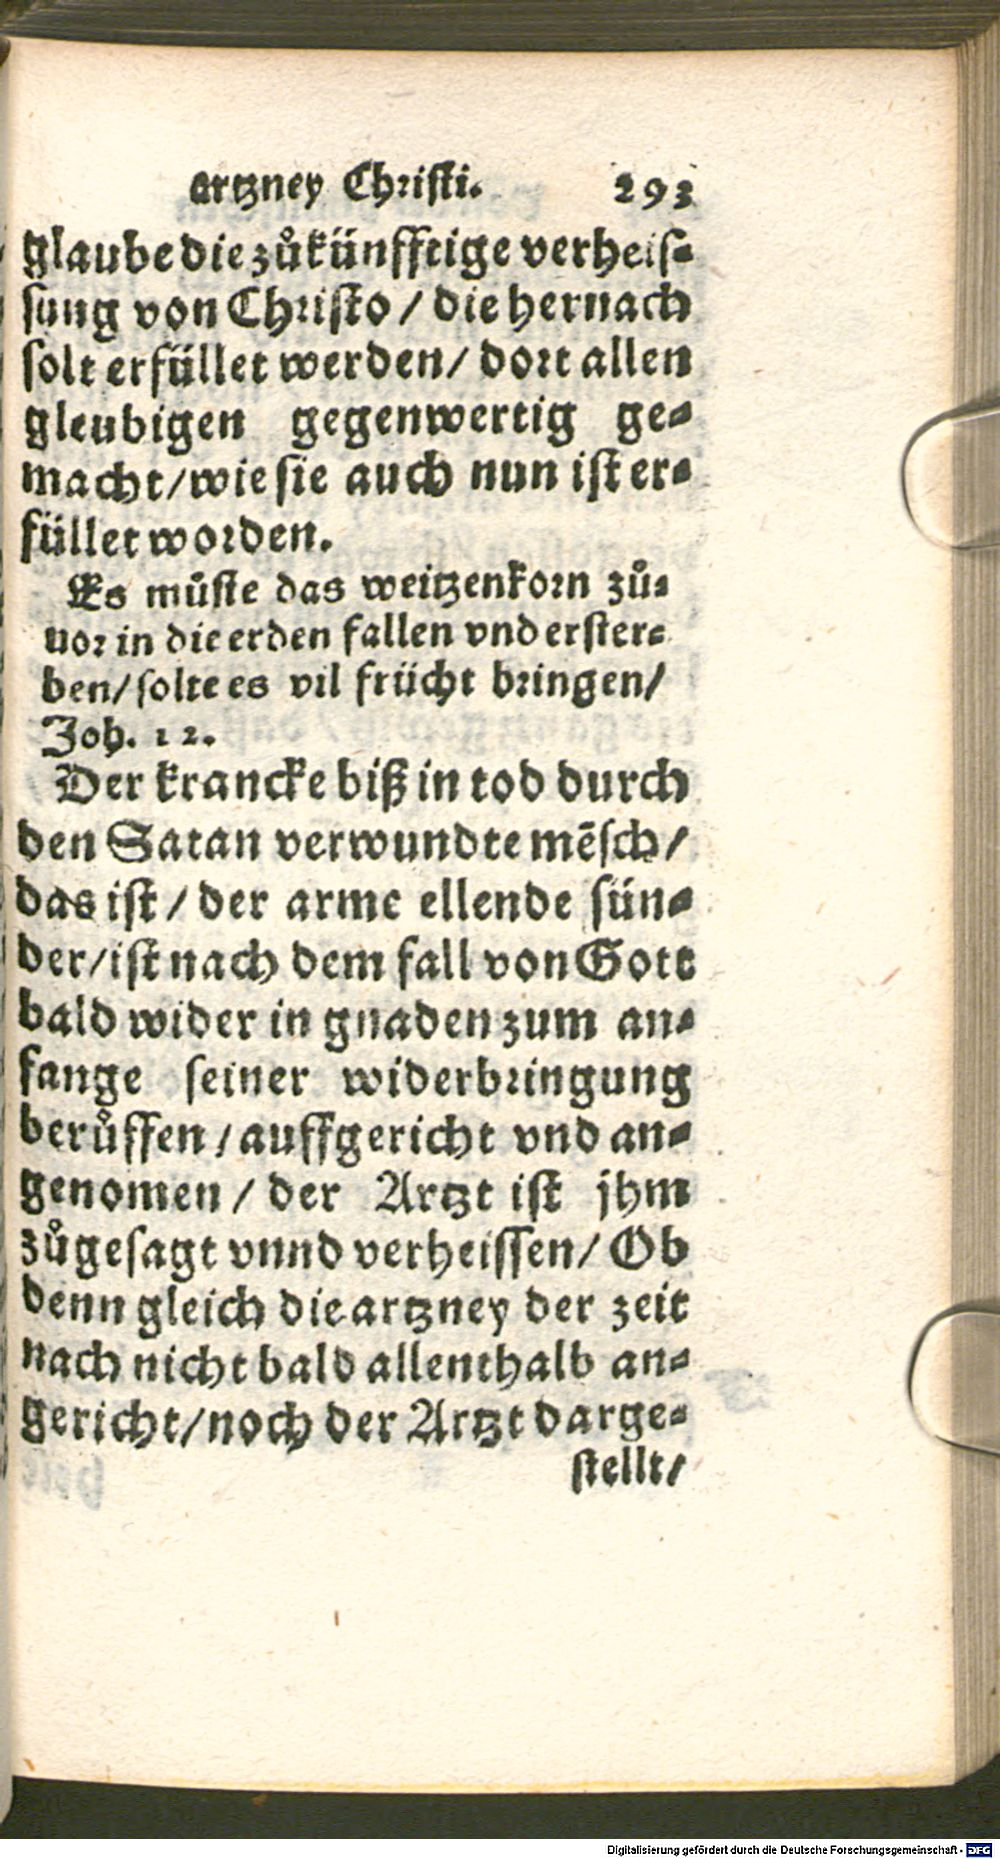 artzney Christi. 293
glaube die zůkünfftige verheis-
sung von Christo / die hernach
solt erfüllet werden / dort allen
gleubigen gegenwertig ge-
macht / wie sie auch nun ist er-
füllet worden.
Es můste das weitzenkorn zů-
uor in die erden fallen vnd erster-
ben / solte es vil frücht bringen /
Joh. 12.
Der krancke biß in tod durch
den Satan verwundte mēsch /
das ist / der arme ellende sün-
der / ist nach dem fall von Gott
bald wider in gnaden zum an-
fange seiner widerbringung
berůffen / auffgericht vnd an-
genomen / der Artzt ist jhm
zůgesagt vnnd verheissen / Ob
denn gleich die artzney der zeit
nach nicht bald allenthalb an-
gericht / noch der Artzt darge-
stellt /
Digitalisierung gefördert durch die Deutsche Forschungsgemeinschaft - DFG